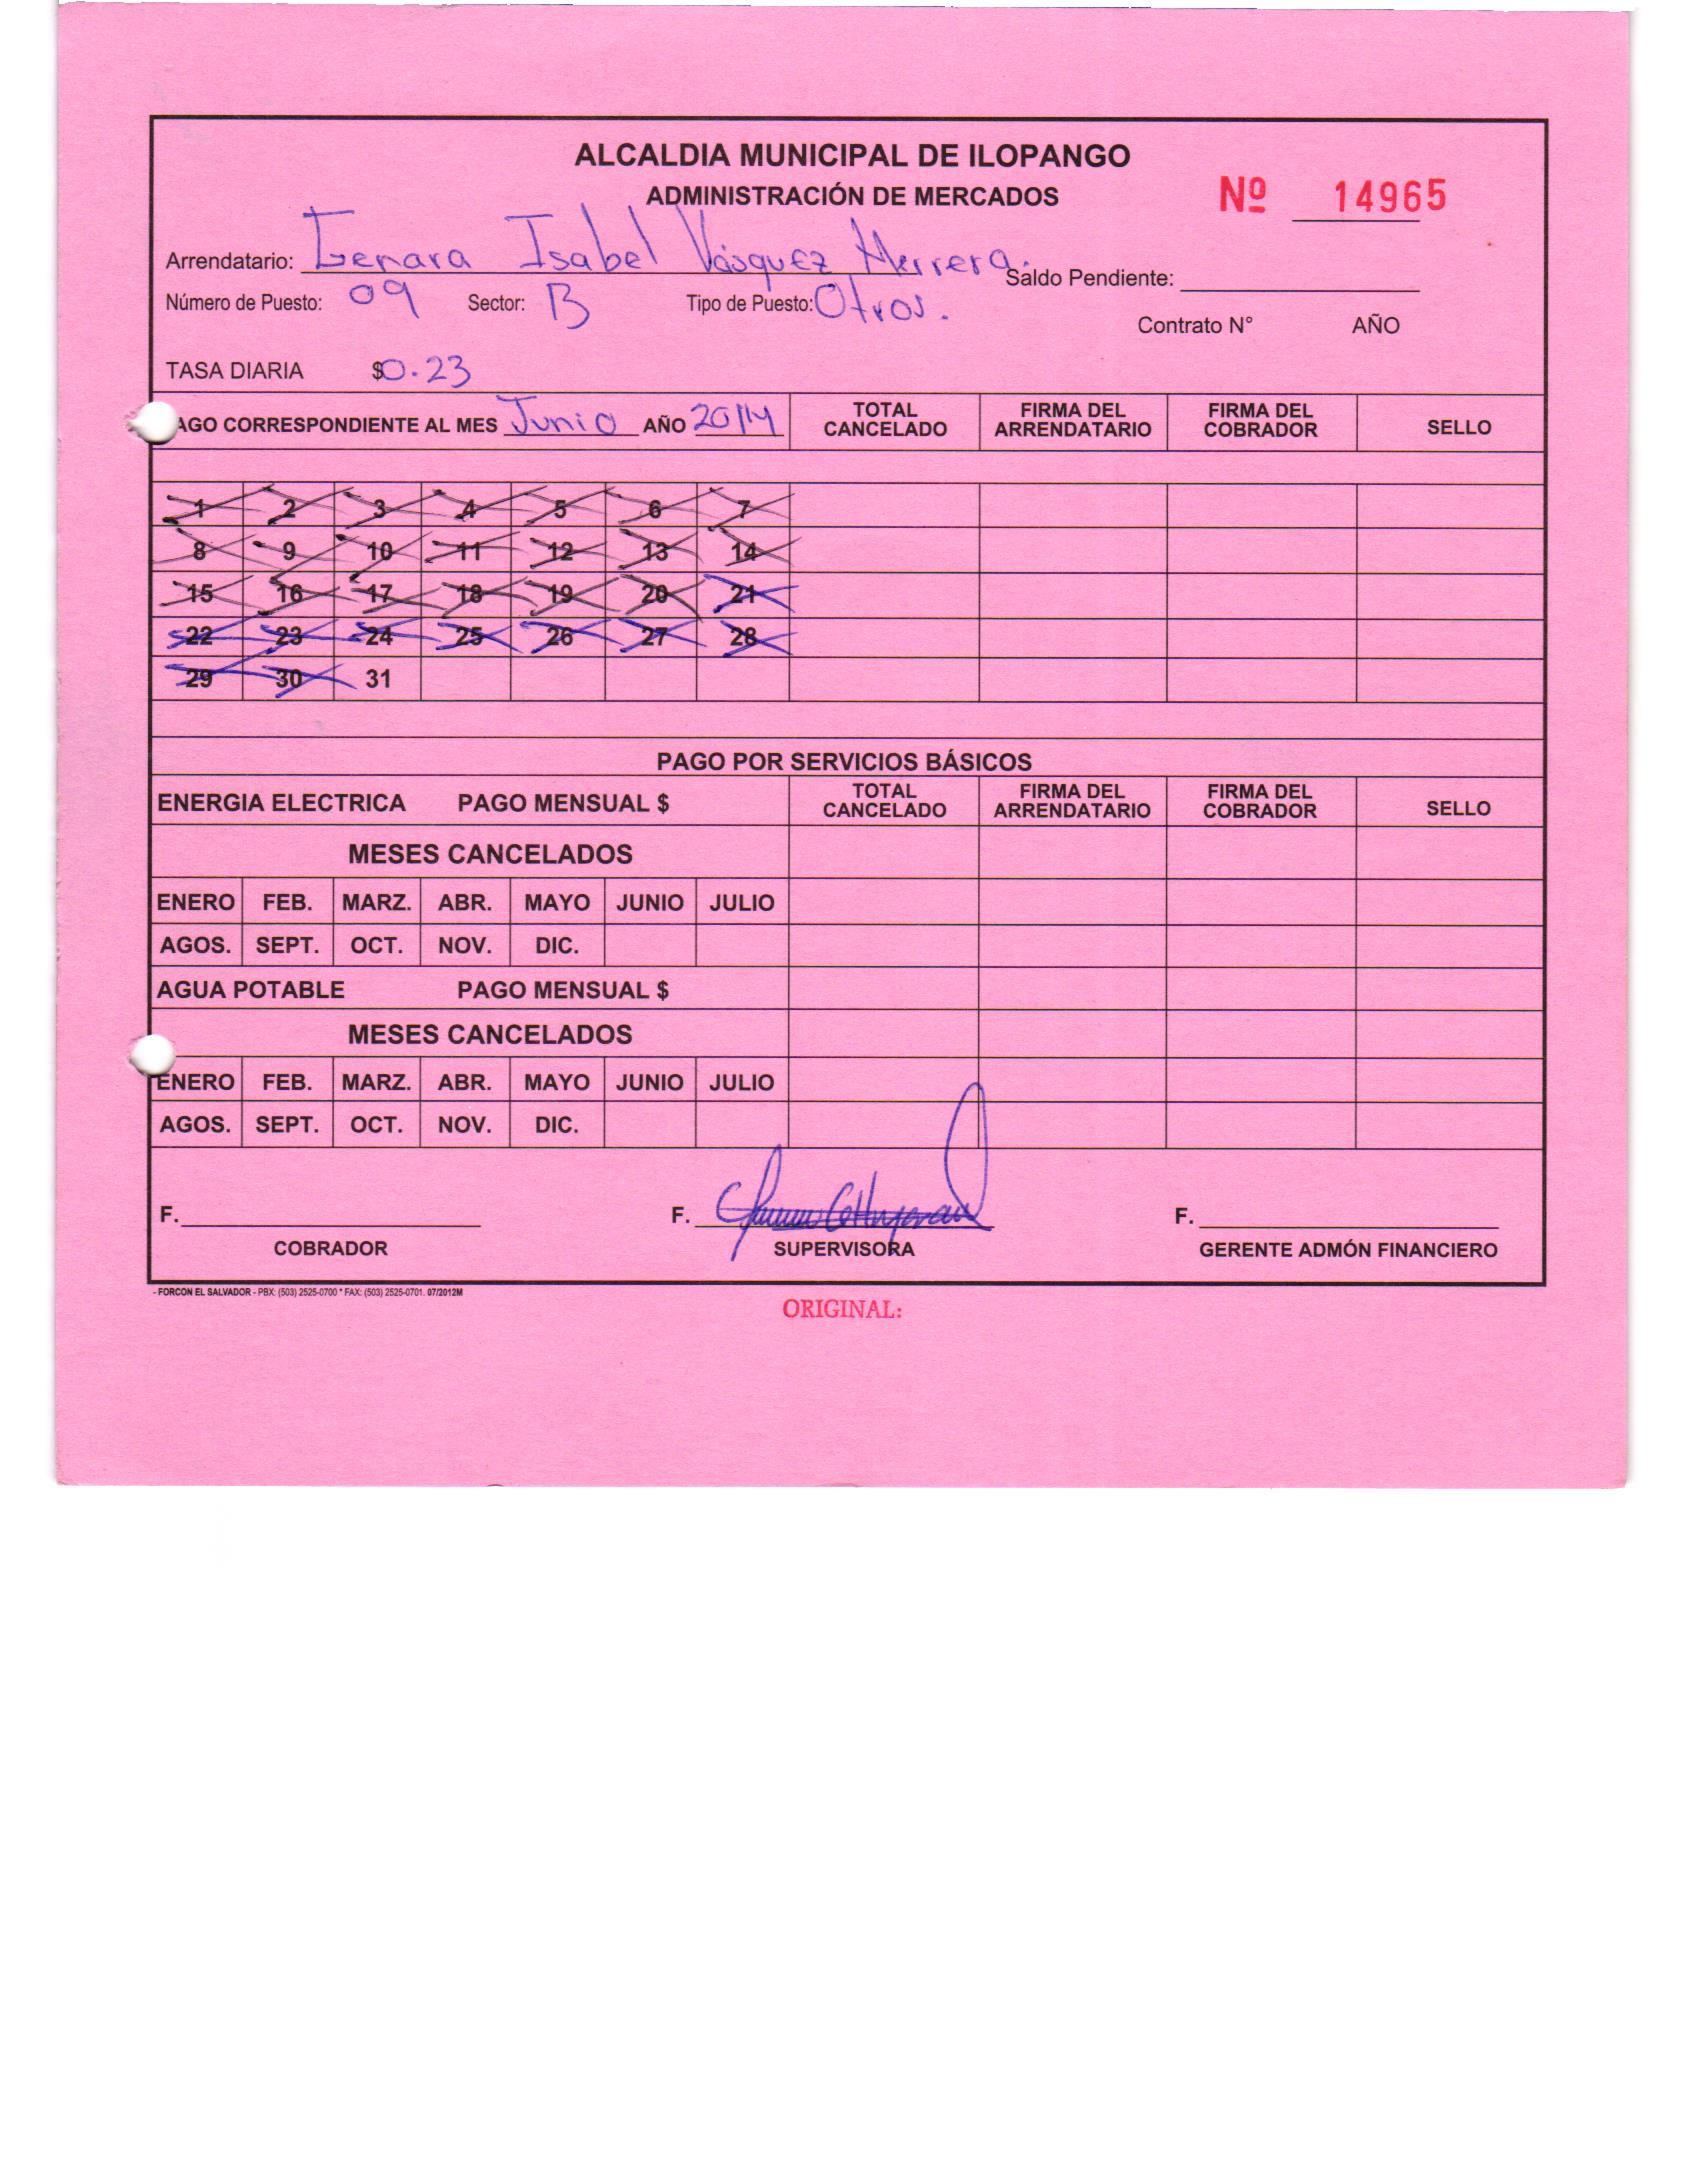 ALCALDIA MUNICIPAL DE ILOPANGO
ADMINISTRACIÓN DE MERCADOS
Nº 14965
Arrendatario: Genara Isabel Vásquez Herrera.
Saldo Pendiente:
Número de Puesto: 09 Sector: B Tipo de Puesto: Otros.
Contrato N° AÑO
TASA DIARIA $0.23
AGO CORRESPONDIENTE AL MES Junio AÑO 2014 TOTAL CANCELADO FIRMA DEL ARRENDATARIO FIRMA DEL COBRADOR SELLO
1 2 3 4 5 6 7
8 9 10 11 12 13 14
15 16 17 18 19 20 21
22 23 24 25 26 27 28
29 30 31
PAGO POR SERVICIOS BÁSICOS
ENERGIA ELECTRICA PAGO MENSUAL $ TOTAL CANCELADO FIRMA DEL ARRENDATARIO FIRMA DEL COBRADOR SELLO
MESES CANCELADOS
ENERO FEB. MARZ. ABR. MAYO JUNIO JULIO
AGOS. SEPT. OCT. NOV. DIC.
AGUA POTABLE PAGO MENSUAL $
MESES CANCELADOS
ENERO FEB. MARZ. ABR. MAYO JUNIO JULIO
AGOS. SEPT. OCT. NOV. DIC.
F. F. F.
COBRADOR SUPERVISORA GERENTE ADMÓN FINANCIERO
- FORCON EL SALVADOR - PBX: (503) 2525-0700 * FAX: (503) 2525-0701. 07/2012M
ORIGINAL: